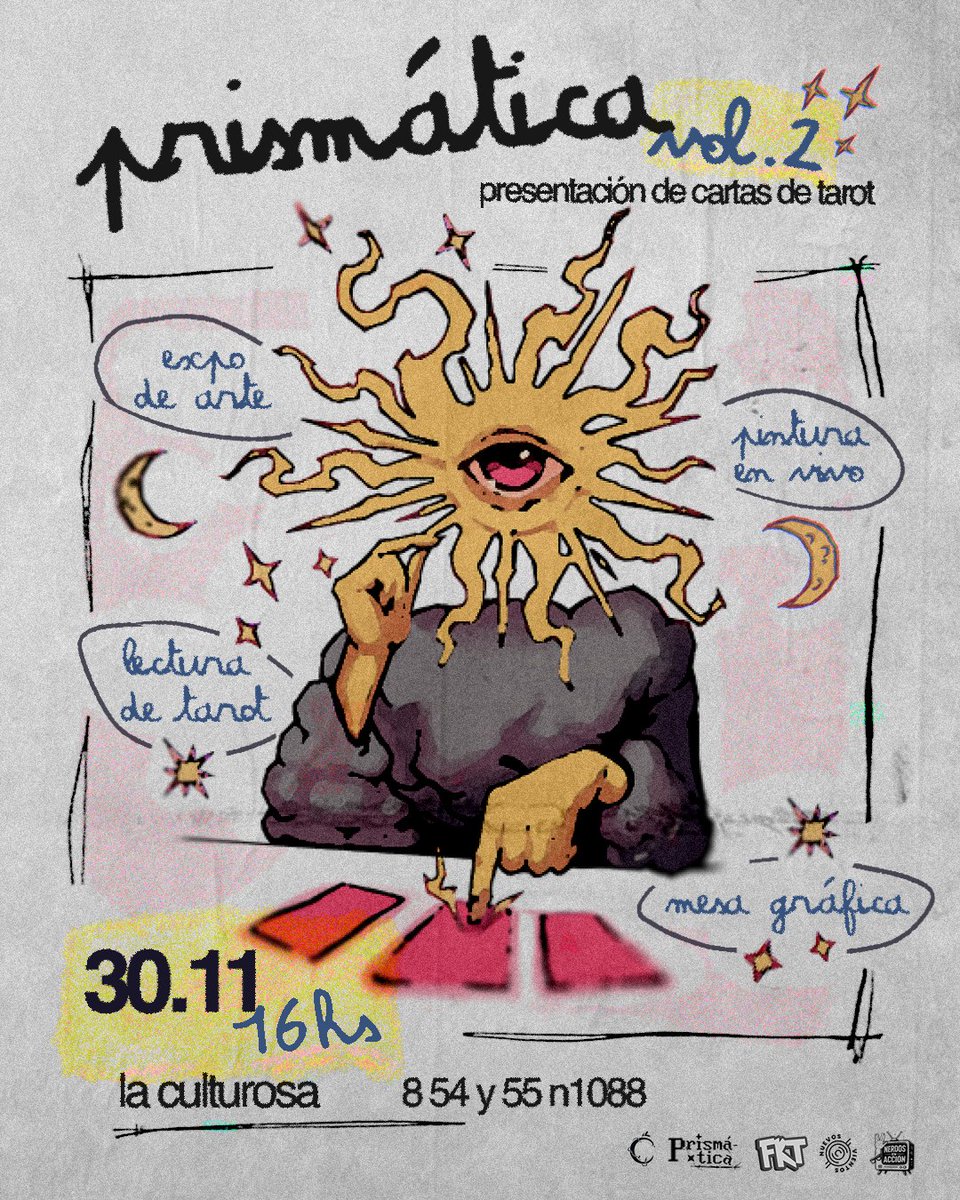 prismática
vol. 2
presentación de cartas de tarot
expo
de arte
pintura
en vivo
lectura
de tarot
mesa gráfica
30.11
16hs
la culturosa
8 54 y 55 n1088
Prismá-
tica
FKT
NUEVOS
VIENTOS
NERDOS
EN
ACCION